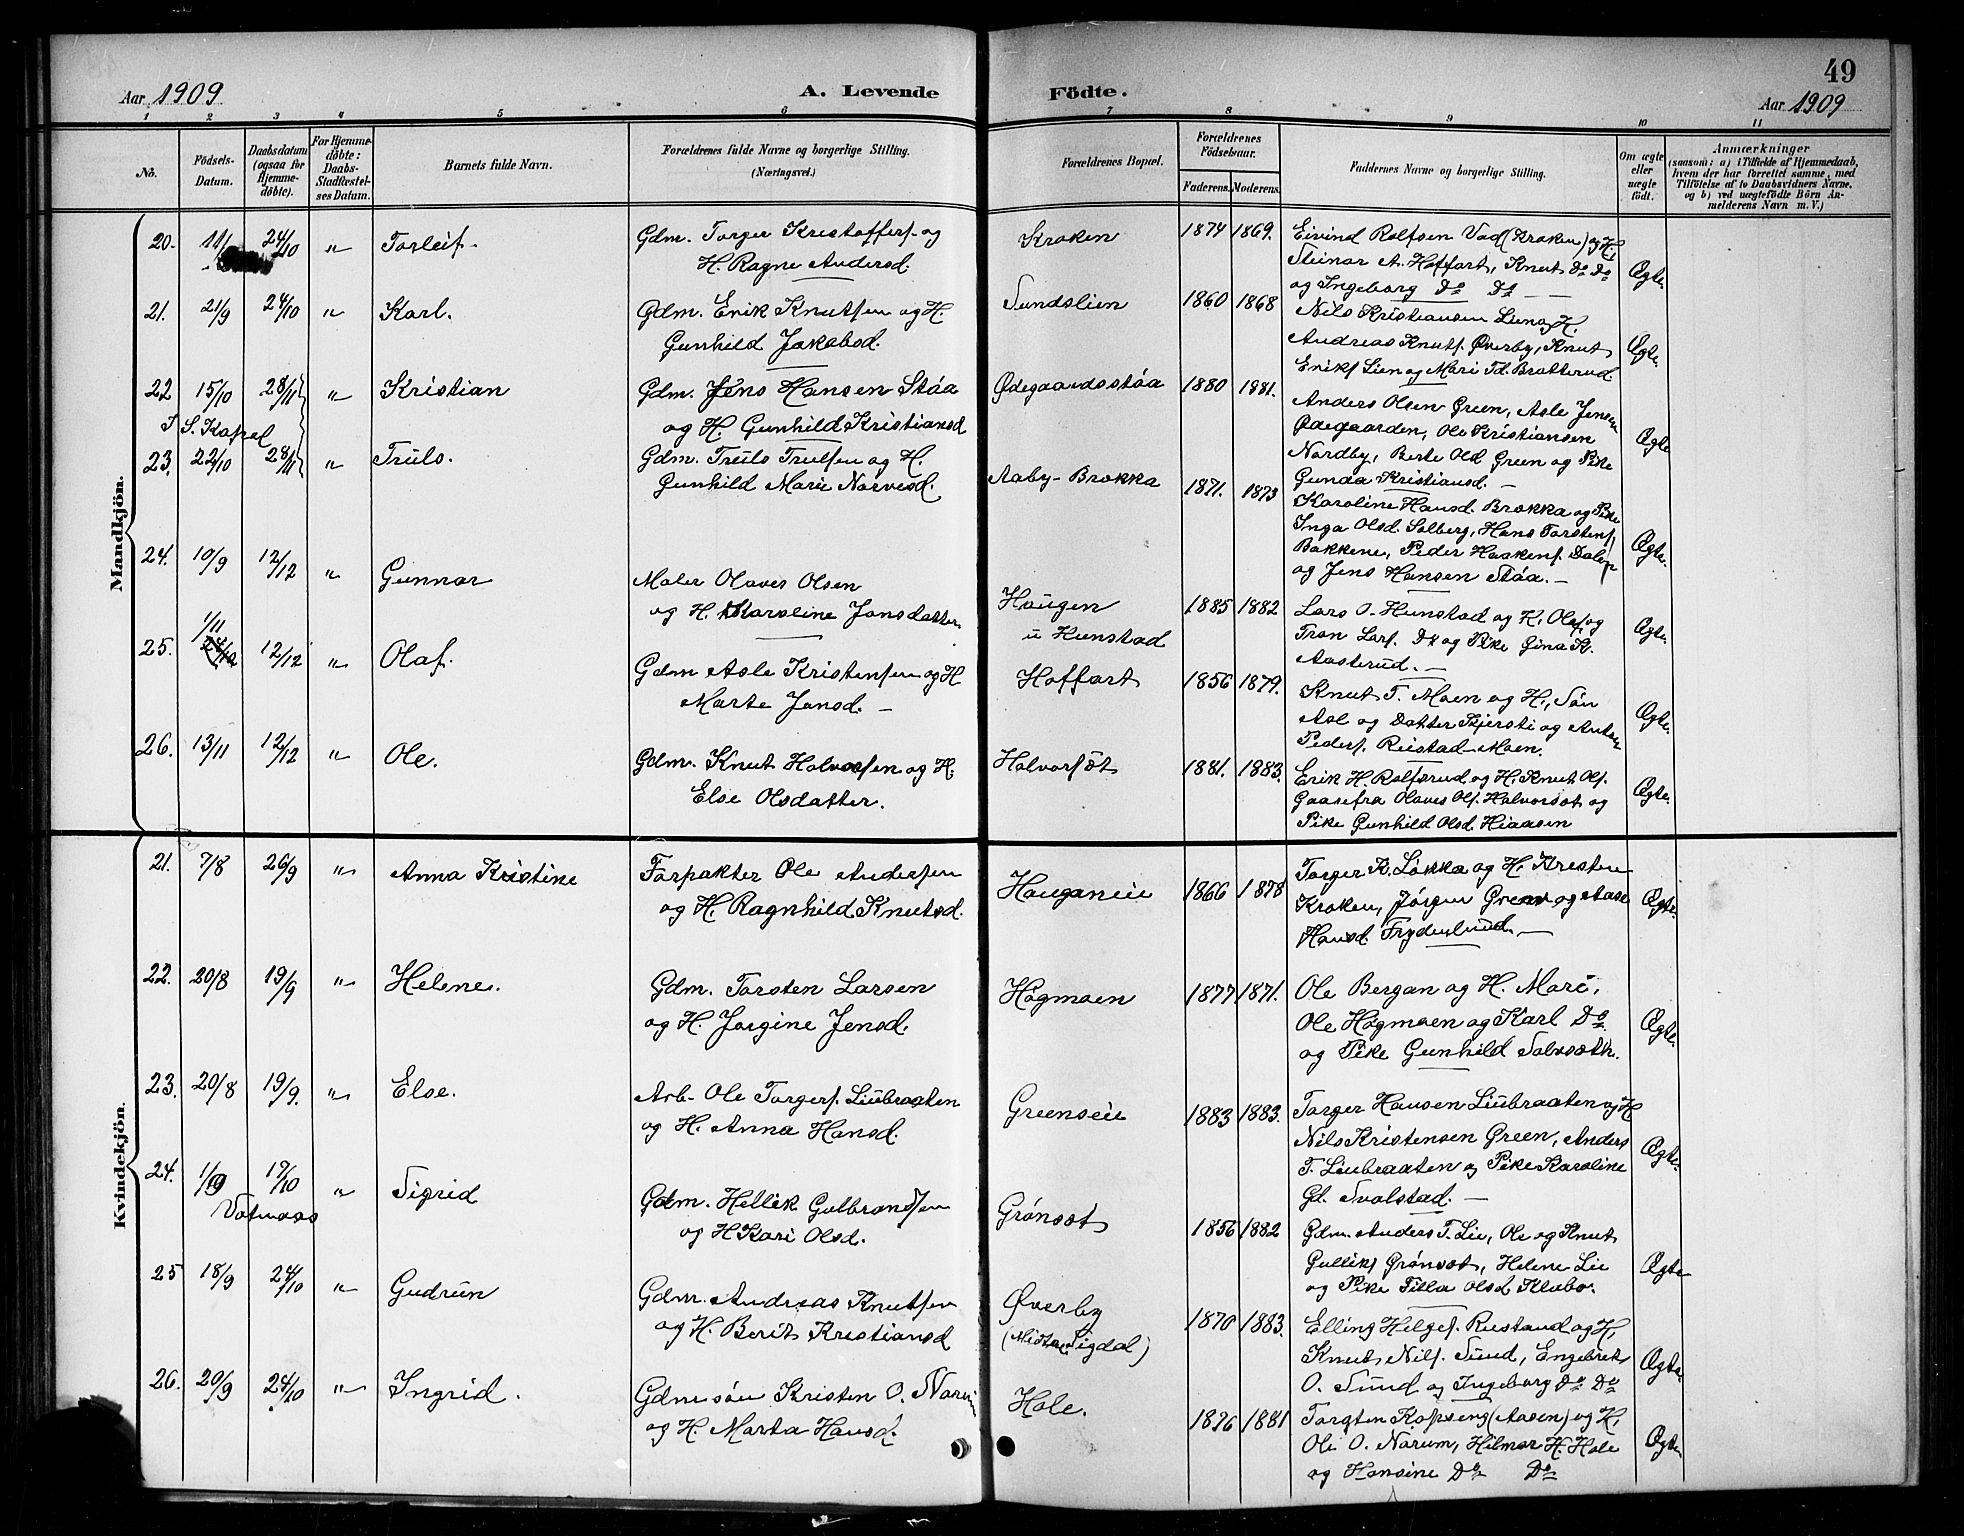 49
Aar 1909. A. Levende Födte. Aar 1909
1 2 3 4 5 6 7 8 9 10 11
No.
Födsels-Datum.
Daabsdatum (ogsaa for Hjemmedöbte).
For Hjemmedöbte: Daabs-Stadfæstelses Datum.
Barnets fulde Navn.
Forældrenes fulde Navne og borgerlige Stilling. (Næringsvei.)
Forældrenes Bopæl.
Forældrenes Födselsaar.
Faderens. Moderens.
Faddernes Navne og borgerlige Stilling.
Om ægte eller uægte födt.
Anmærkninger
(saasom: a) i Tilfælde af Hjemmedaab, hvem der har forrettet samme, med Tilföielse af to Daabsvidners Navne, og b) ved uægtefödte Börn Anmelderens Navn m. V.)
Mandkjön.
20. 11/ 24/10 " Torleif. Gdm. Torger Kristoffers. og
H. Ragne Andersd. Kroken 1874 1869. Eivind Rolfsen Vad (Kroken) og H.
Steinar A. Hoffart, Knut Do Do
og Ingeborg Do Do — Ægte.
21. 21/9 24/10 " Karl. Gdm. Erik Knutsen og H.
Gunhild Jakobsd. Sundslien 1860 1868 Nils Kristiansen Lien og H.
Andreas Knuts. Øverby, Knut
Eriks Lien og Mari Td. Bratterud Ægte.
22 15/10 28/11 " Kristian Gdm. Jens Hansen Støa
og H. Gunhild Kristiansd Ødegaardsstøa 1880 1881. Anders Olsen Green, Asle Jensen
Ødegaarden, Ole Kristiansen
Nordby, Berte Old Green og Pike
Gunda Kristiansd. — Ægte
I S. Kapel
23. 22/10 28/11 " Truls. Gdm. Truls Trulsen og H.
Gunhild Marie Narvesd. Aaby-Brokka 1871. 1873 Karoline Hansd. Brokka og Pike
Inga Olsd. Solberg, Hans Torstens,
Bakkene, Peder Haakens. Dalen
og Jens Hansen Støa. — Ægte.
24. 10/9 12/12 " Gunnar Maler Olaves Olsen
og H. Karoline Jonsdatter Haugen
u Hunstad 1885 1882 Lars O. Hunstad og H, Olaf og
Tron Lars. Do og Pike Gina K.
Aasterud. — Ægte.
25. 1/11 12/12 " Olaf. Gdm Asle Kristensen og H
Marte Jonsd. — Hoffart 1856 1879. Knut T. Moen og H., Søn
Asl og Datter Kjersti og Anton
Peders. Rustad-Moen. Ægte.
26. 13/11 12/12 " Ole. Gdm. Knut Halvorsen og H.
Else Olsdatter. Halvorsøt 1881. 1883. Erik H. Rolfsrud og H, Knut Ols.
Gaasefra Olaves Ols. Halvorsøt og
Pike Gunhild Olsd. Hiaasen Ægte.
Kvindekjön.
21. 7/8 26/9 " Anna Kristine Forpakter Ole Andersen
og H. Ragnhild Knutsd. Hauganeie 1866 1878 Torger K. Løkka og H. Kresten
Kroken, Jørgen Green og Aase
Hansd. Frydenlund. — Ægte.
22. 20/8 19/9 " Helene. Gdm. Torsten Larsen
og H. Jorgine Jensd. Høgmoen 1877 1871. Ole Bergan og H. Mari,
Ole Høgmoen og Karl Do
og Pike Gunhild Solvseth. Ægte.
23. 20/8 19/9. " Else. Arb- Ole Torgers. Liubraaten
og H. Anna Hansd. Greenseie 1883 1883. Torger Hansen Liubraaten og H
Nils Kristensen Green, Anders
T. Liubraaten og Pike Karoline
Gd. Svalstad. — Ægte.
24. 1/9 17/10 " Sigrid Gdm. Hellik Gulbrandsen
og H Kari Olsd. Grønsøt 1856 1882 Gdm. Anders T. Lie, Ole og Knut
Gulliks Grønsøt, Helene Lie
og Pike Tilla Olsd Klabo. Ægte
Vatnaas
25 18/9 24/10 " Gudrun Gdm. Andreas Knutsen
og H. Berit Kristiansd Øverby
(Sigdal) 1870 1883. Elling Helges. Rustand og H,
Knut Nils. Sund, Engebret
O. Sund og Ingeborg Do Do Ægte
26. 20/9 24/10 " Ingrid. Gdmesøn Kristen O. Narum
og H. Marta Hansd. Hole. 1876 1881 Torsten Kopseng (Aasen) og H,
Ole O. Narum, Hilmar H. Hole
og Hansine Do Do Ægte